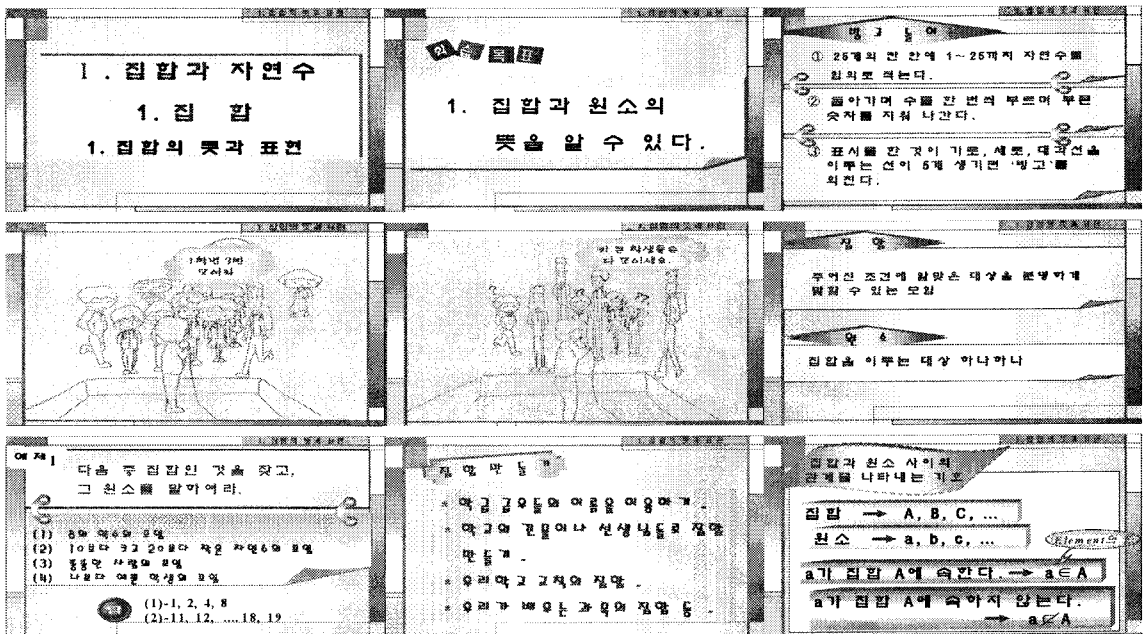 Ⅰ. 집합과 자연수
1. 집 합
1. 집합의 뜻과 표현
학 습 목 표
1. 집합과 원소의
뜻을 알 수 있다.
빙 고 놀 이
① 25개의 칸 안에 1~25까지 자연수를
임의로 적는다.
② 돌아가며 수를 한 번씩 부르며 부른
숫자를 지워 나간다.
③ 표시를 한 것이 가로, 세로, 대각선을
이루는 선이 5개 생기면 '빙고'를
외친다.
1학년 3반
모여라
다 모이세요.
집 합
주어진 조건에 알맞은 대상을 분명하게
말할 수 있는 모임
원 소
집합을 이루는 대상 하나하나
예 제 1
다음 중 집합인 것을 찾고,
그 원소를 말하여라.
(1) 8의 약수의 모임
(2) 10보다 크고 20보다 작은 자연수의 모임
(3) 뚱뚱한 사람의 모임
(4) 나보다 예쁜 학생의 모임
(1)-1, 2, 4, 8
(2)-11, 12, ....18, 19
집 합 만 들 기
* 학급 급우들의 이름을 이용하기.
* 학교의 건물이나 선생님들로 집합
만들기.
* 우리학교 교칙의 집합.
* 우리가 배우는 과목의 집합 등.
집합과 원소 사이의
관계를 나타내는 기호
집합 → A, B, C, ...
원소 → a, b, c, ...
Element의
a가 집합 A에 속한다. → a∈A
a가 집합 A에 속하지 않는다.
→ a∉A